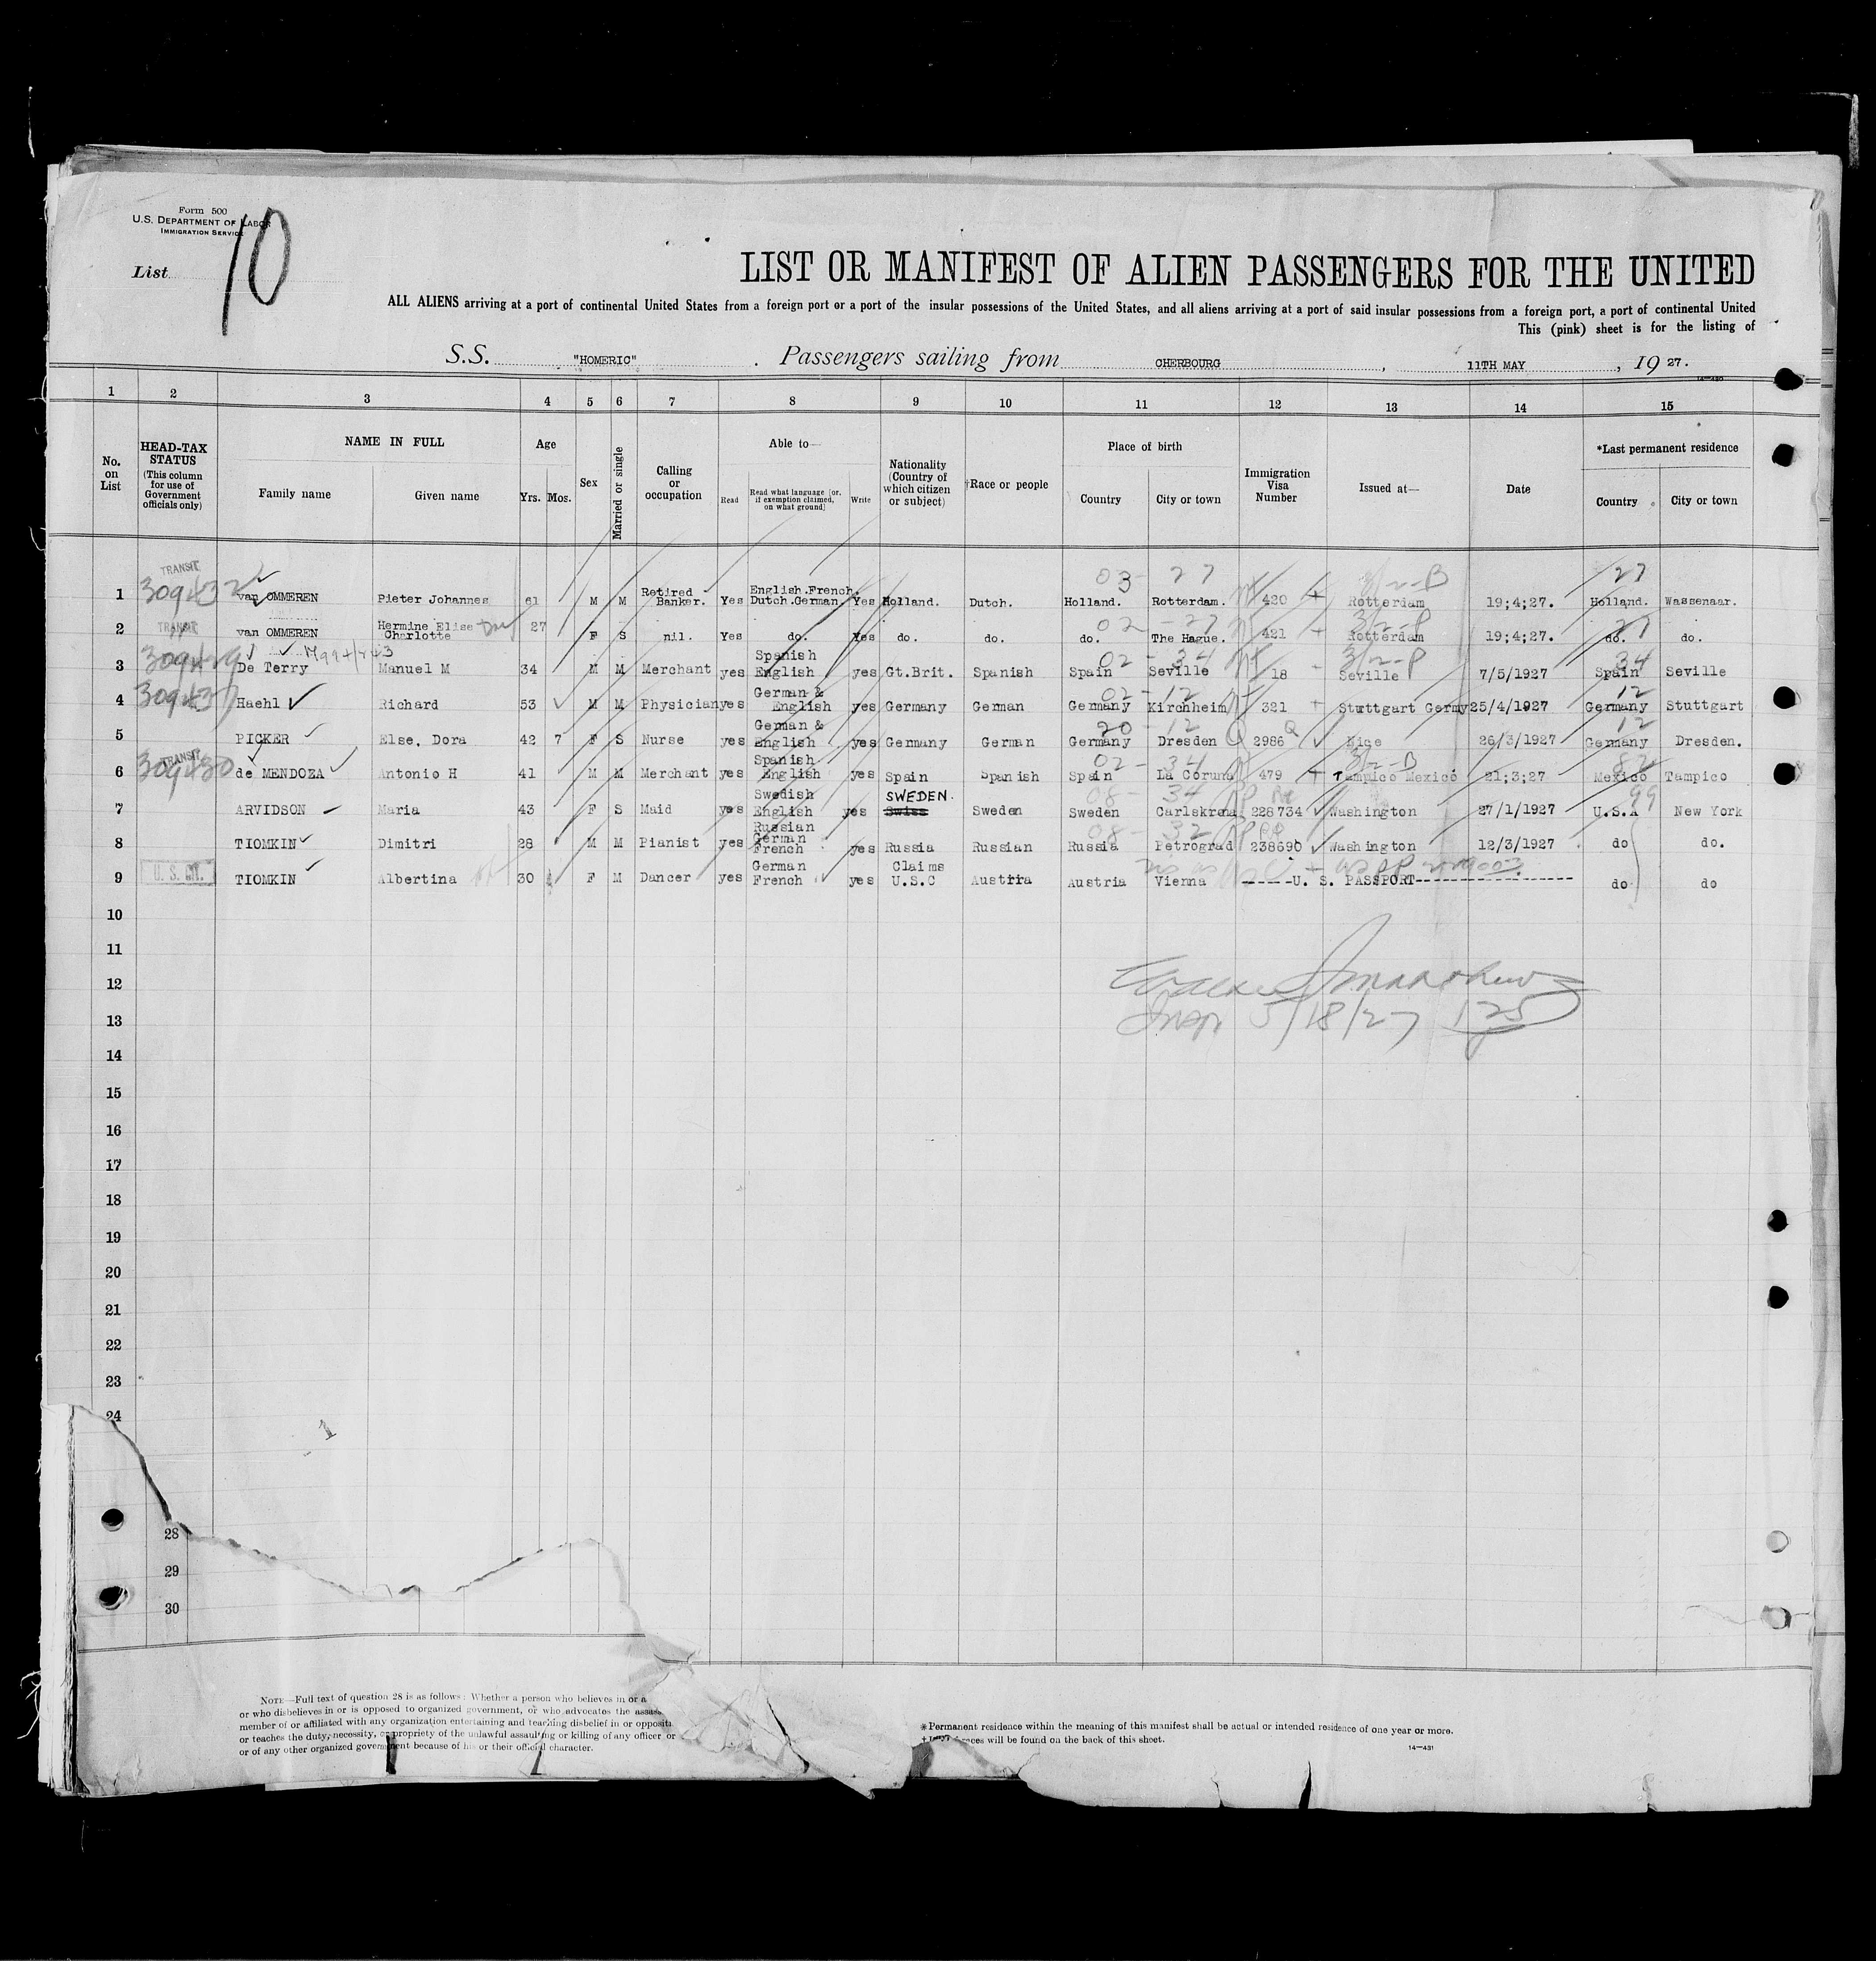 Form 500
U.S. DEPARTMENT OF LABOR
IMMIGRATION SERVICE
List 10
LIST OR MANIFEST OF ALIEN PASSENGERS FOR THE UNITED
ALL ALIENS arriving at a port of continental United States from a foreign port or a port of the insular possessions of the United States, and all aliens arriving at a port of said insular possessions from a foreign port, a port of continental United
This (pink) sheet is for the listing of
S.S. "HOMERIC" . Passengers sailing from CHERBOURG , 11TH MAY , 19 27.
14—430
1 2 3 4 5 6 7 8 9 10 11 12 13 14 15
No. on List
HEAD-TAX STATUS (This column for use of Government officials only)
NAME IN FULL
Family name Given name
Age
Yrs. Mos.
Sex
Married or single
Calling or occupation
Able to—
Read Read what language [or, if exemption claimed, on what ground] Write
Nationality (Country of which citizen or subject)
†Race or people
Place of birth
Country City or town
Immigration Visa Number
Issued at—
Date
*Last permanent residence
Country City or town
TRANSIT
03- 27 3/2-B 27
1 309432 van OMMEREN Pieter Johannes 61 M M Retired Banker. Yes English.French. Dutch.German. Yes Holland. Dutch. Holland. Rotterdam. 420 + Rotterdam 19;4;27. Holland. Wassenaar.
TRANSIT
02 - 27 3/2-P 27
2 van OMMEREN Hermine Elise Charlotte 27 F S nil. Yes do. Yes do. do. do. The Hague. 421 + Rotterdam 19;4;27. do. do.
02 - 34 3/2-P 34
3 De Terry Manuel M 34 M M Merchant yes Spanish English yes Gt.Brit. Spanish Spain Seville 18 Seville 7/5/1927 Spain Seville
02 - 12 12
4 30943 Haehl Richard 53 M M Physician yes German & English yes Germany German Germany Kirchheim 321 + Stuttgart Germy 25/4/1927 Germany Stuttgart
20 - 12 12
5 PICKER Else, Dora 42 7 F S Nurse yes German & English yes Germany German Germany Dresden 2986 Nice 26/3/1927 Germany Dresden.
TRANSIT
02 - 34 3/2-B 82
6 309430 de MENDOZA Antonio H 41 M M Merchant yes Spanish English yes Spain Spanish Spain La Coruna 479 + Tampico Mexico 21;3;27 Mexico Tampico
08- 34 99
7 ARVIDSON Maria 43 F S Maid yes Swedish English yes SWEDEN. Swiss Sweden Sweden Carlskrena 228734 Washington 27/1/1927 U.S.A New York
08- 32
8 TIOMKIN Dimitri 28 M M Pianist yes Russian German French yes Russia Russian Russia Petrograd 238690 Washington 12/3/1927 do do.
9 U. S. CIT. TIOMKIN Albertina 30 F M Dancer yes German French yes Claims U.S.C Austria Austria Vienna ------U. S. PASSPORT----------------- do do
10
11
12
13
Insp. 5/18/27 125
14
15
16
17
18
19
20
21
22
23
24
28
29
30
NOTE—Full text of question 28 is as follows: Whether a person who believes in or a
or who disbelieves in or is opposed to organized government, or who advocates the assas
member of or affiliated with any organization entertaining and teaching disbelief in or oppositi
or teaches the duty, necessity, or propriety of the unlawful assaulting or killing of any officer or
or of any other organized government because of his or their official character.
*Permanent residence within the meaning of this manifest shall be actual or intended residence of one year or more.
† races will be found on the back of this sheet.
14—431